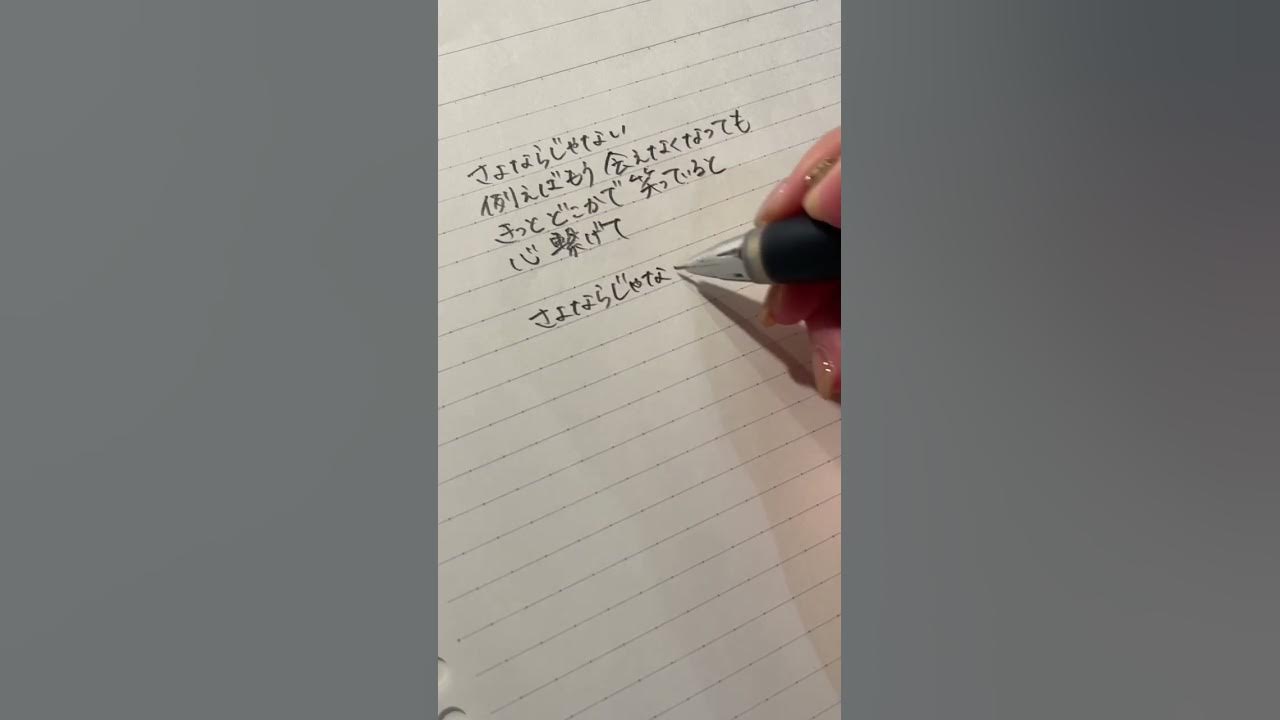 さよならじゃない
例えばもう会えなくなっても
きっとどこかで笑っていると
心繋げて
さよならじゃな